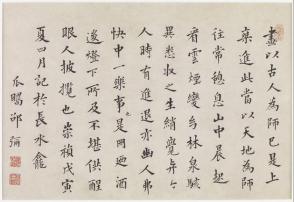 畫以古人為師已是上
乘進此當以天地為師
往常憩息山中晨起
看雲煙變幻林泉駭
異悉收之生綃覺弁
人時有進退亦幽人弗
快中一樂事是日迺酒
後燈下所及不堪供醒
眼人披攬也崇禎戊寅
夏四月記於長水龕
瓜疇邵彌